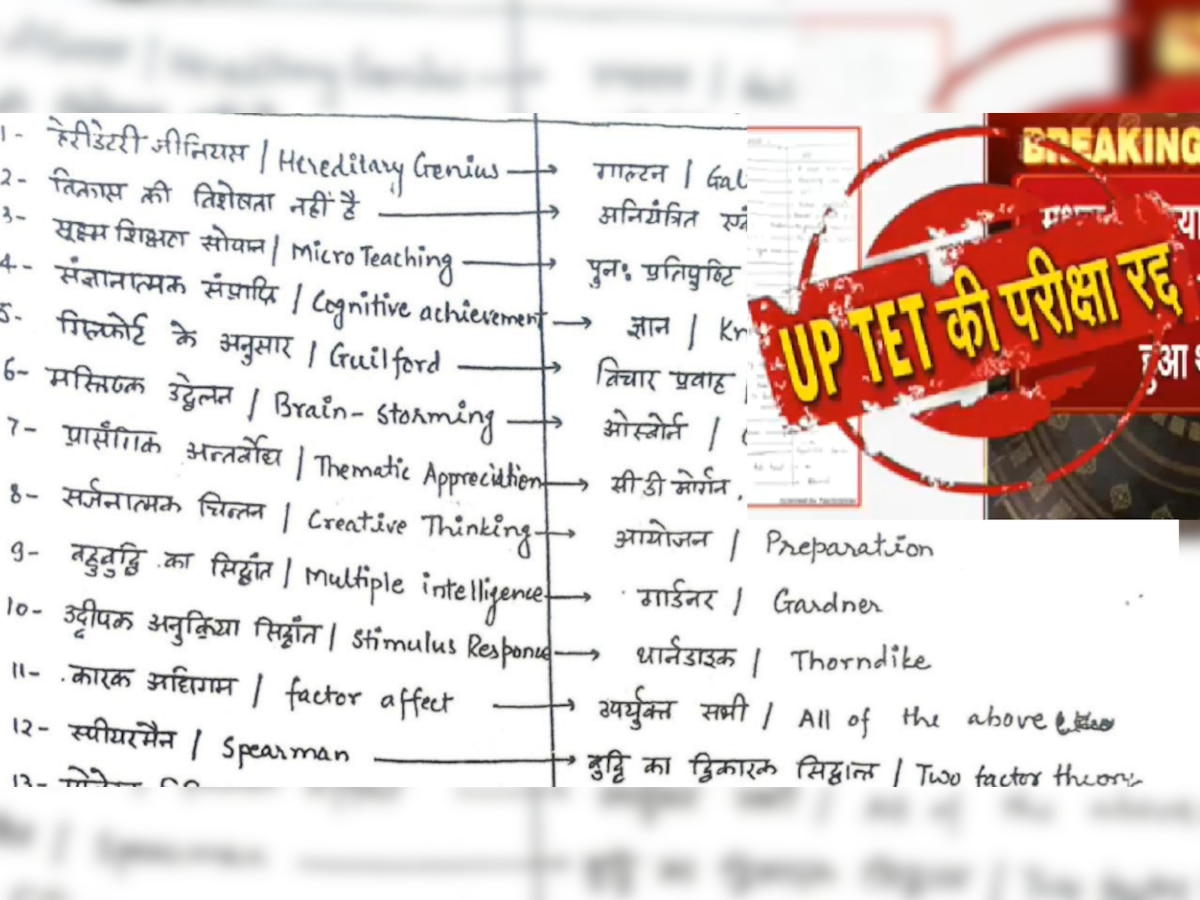 1- हेरीडेटरी जीनियस | Hereditary Genius → गाल्टन | Gal
2- विकास की विशेषता नहीं है → अनियंत्रित
3- सूक्ष्म शिक्षण सोपान | Micro Teaching → पुनः प्रतिपुष्टि
4- संज्ञानात्मक संप्राप्ति | Cognitive achievement → ज्ञान | Kn
5- गिलफोर्ट के अनुसार | Guilford → विचार प्रवाह |
6- मस्तिष्क उद्वेलन | Brain-storming → ओस्बोर्न |
7- प्रासंगिक अन्तर्बोध | Thematic Appreciation → सी डी मोर्गन
8- सर्जनात्मक चिन्तन | Creative Thinking → आयोजन | Preparation
9- बहुबुद्धि का सिद्धांत | Multiple intelligence → गार्डनर | Gardner
10- उद्दीपक अनुक्रिया सिद्धांत | Stimulus Responce → थार्नडाइक | Thorndike
11- कारक अधिगम | factor affect → उपर्युक्त सभी | All of the above
12- स्पीयरमैन | Spearman → बुद्धि का द्विकारक सिद्धान्त | Two factor theory
13-
BREAKING
UP TET की परीक्षा रद्द
हुआ